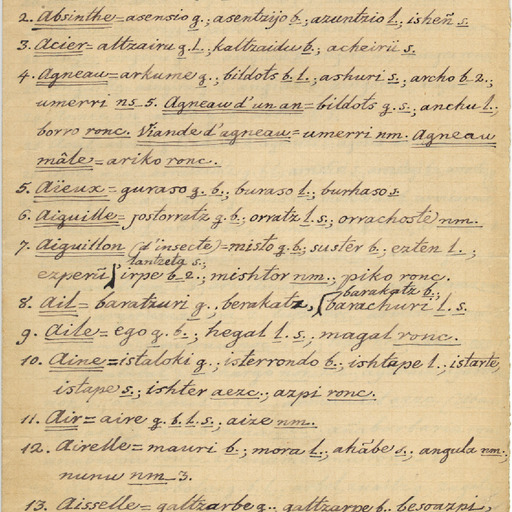 2. Absinthe = asensio g.; asentzijo b.; azuntzio l.; isheñ s.
3. Acier = altzairu g. l.; kaltzaidu b.; acheirü s.
4. Agneau = arkume g.; bildots b. l.; ashuri s.; archo b. 2.;
umerri ns 5. Agneau d'un an = bildots g. s.; anchu l.;
borro ronc. Viande d'agneau = umerri nm. Agneau
mâle = ariko ronc.
5. Aïeux = guraso g. b.; buraso l.; burhaso s.
6. Aiguille = jostorratz g. b.; orratz l. s.; orrachoste nm.
7. Aiguillon (d'insecte) = misto g. b.; suster b.; ezten l.;
tantzeta s.;
ezperü irpe b. 2.; mishtor nm.; piko ronc.
barakatz b.;
8. Ail = baratzuri g.; berakatz, barachuri l. s.
9. Aile = ego g. b.; hegal l. s.; magal ronc.
10. Aine = istaloki g.; isterrondo b.; ishtape l.; istarte,
istape s.; ishter aezc.; azpi ronc.
11. Air = aire g. b. l. s.; aize nm.
12. Airelle = mauri b.; mora l.; ahãbe s.; angula nm.;
nunu nm 3.
13. Aisselle = galtzarbe g.; galtzarpe b.; besoazpi,